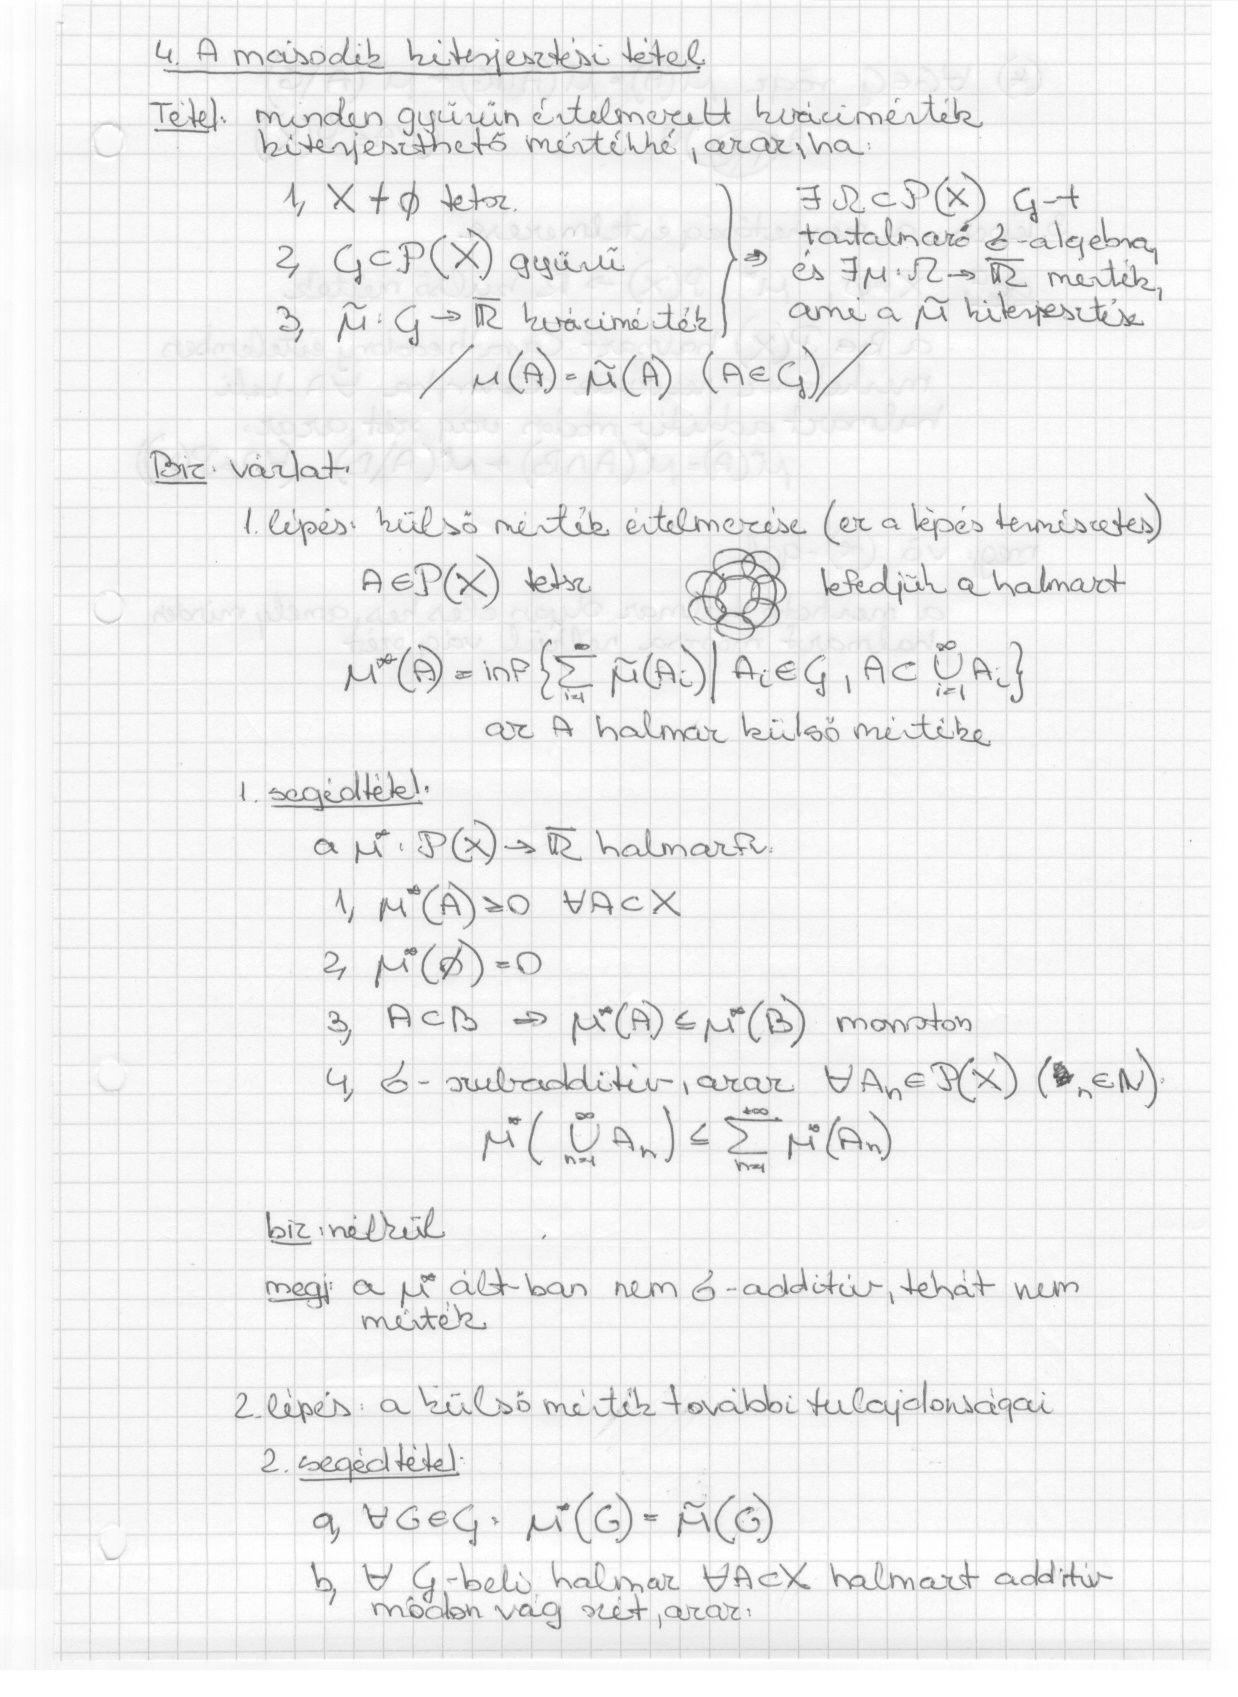 4. A második kiterjesztési tétel
Tétel: minden gyűrűn értelmezett kvázimérték
kiterjeszthető mértékké, azaz, ha:
1, X ≠ ∅ tetsz.
2, G ⊂ P(X) gyűrű
3, μ̃: G → ℝ̄ kvázimérték
⇒ ∃ Ω ⊂ P(X) G-t
tartalmazó σ-algebra,
és ∃ μ: Ω → ℝ̄ mérték,
ami a μ̃ kiterjesztése
/ μ(A) = μ̃(A) (A ∈ G) /
Biz: vázlat:
1. lépés: külső mérték értelmezése (ez a lépés természetes)
A ∈ P(X) tetsz lefedjük a halmazt
μ*(A) = inf { ∑_{i=1}^{∞} μ̃(A_i) | A_i ∈ G, A ⊂ ⋃_{i=1}^{∞} A_i }
az A halmaz külső mértéke
1. segédtétel:
a μ*: P(X) → ℝ̄ halmazfv.
1, μ*(A) ≥ 0 ∀A ⊂ X
2, μ*(∅) = 0
3, A ⊂ B ⇒ μ*(A) ≤ μ*(B) monoton
4, σ-szubadditív, azaz ∀A_n ∈ P(X) (n ∈ N):
μ*( ⋃_{n=1}^{∞} A_n ) ≤ ∑_{n=1}^{+∞} μ*(A_n)
biz: nélkül
megj: a μ* ált-ban nem σ-additív, tehát nem
mérték
2. lépés: a külső mérték további tulajdonságai
2. segédtétel:
a, ∀G ∈ G: μ*(G) = μ̃(G)
b, ∀ G-beli halmaz ∀A ⊂ X halmazt additív
módon vág szét, azaz: